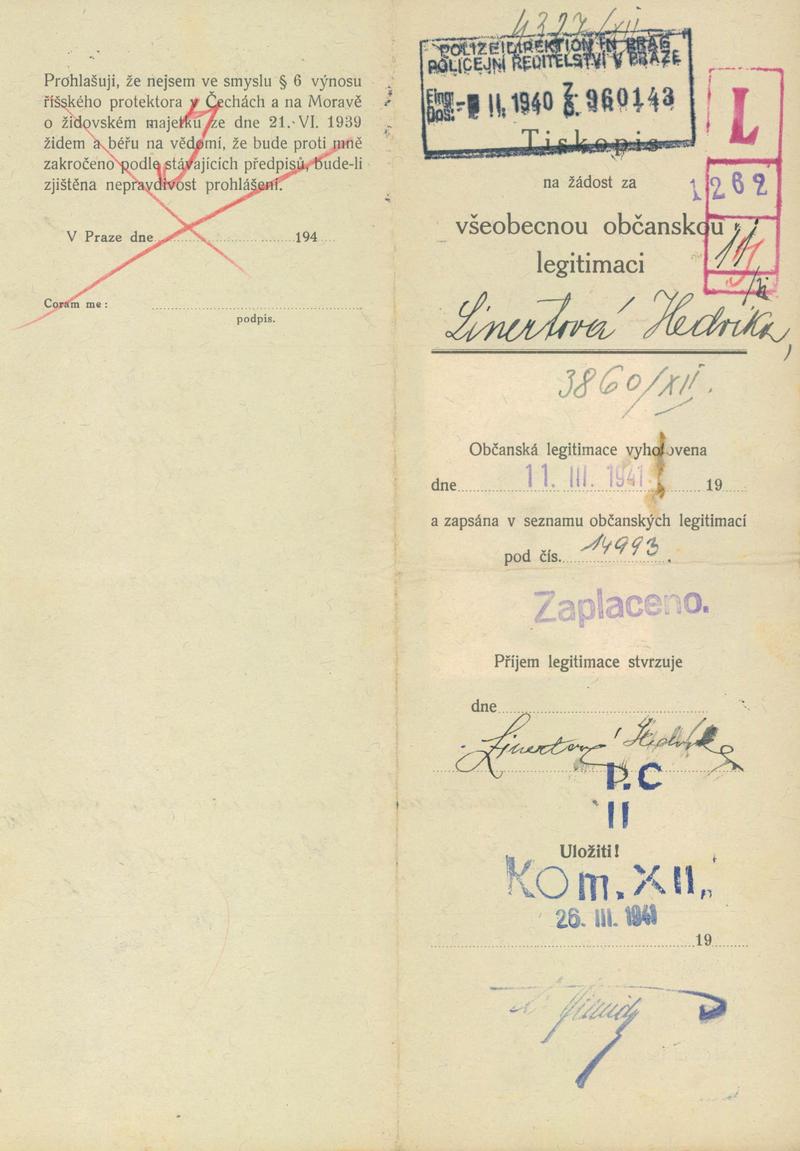 Prohlašuji, že nejsem ve smyslu § 6 výnosu
říšského protektora v Čechách a na Moravě
o židovském majetku ze dne 21. VI. 1939
židem a béřu na vědomí, že bude proti mně
zakročeno podle stávajících předpisů, bude-li
zjištěna nepravdivost prohlášení.
V Praze dne 194
Coram me:
podpis.
4327/XII
POLIZEIDIREKTION IN PRAG
POLICEJNÍ ŘEDITELSTVÍ V PRAZE
Eing. Doš. II. 1940 960143
L
Tiskopis
na žádost za
1262
všeobecnou občanskou
legitimaci
Linertová Hedvika,
3860/XII.
Občanská legitimace vyhotovena
dne 11. III. 1941 19
a zapsána v seznamu občanských legitimací
pod čís. 14993.
Zaplaceno.
Příjem legitimace stvrzuje
dne
Linertová Hedvika
P.C
II
Uložiti!
Kom. XII.
26. III. 1941
19